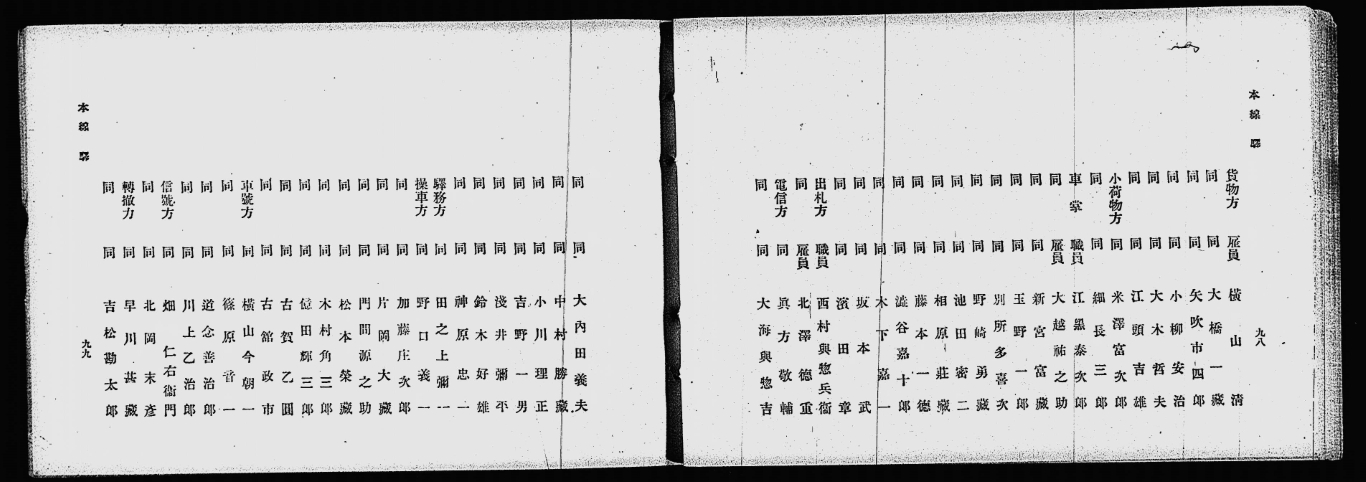 本線驛
貨物方 雇員 橫山清
同 同 大橋一藏
同 同 矢吹市四郎
同 同 小柳安治
同 同 大木哲夫
同 同 江頭吉雄
小荷物方 同 米澤富次郎
同 同 細長三郎
車掌 職員 江黑泰次郎
同 雇員 大越祐之助
同 同 新宮富藏
同 同 玉野一郎
同 同 別所多喜次
同 同 野崎勇藏
同 同 池田密二
同 同 相原莊藏
同 同 藤本一德
同 同 澁谷嘉十郎
同 同 木下嘉一
同 同 坂本武
同 同 濱田章
出札方 職員 西村與惣兵衞
同 雇員 北澤德重
電信方 同 眞方敬輔
同 同 大海與惣吉
九八
同 同 大內田義夫
同 同 中村勝藏
同 同 小川理正
同 同 吉野一男
同 同 淺井彌平
同 同 鈴木好雄
同 同 神原忠一
驛務方 同 田之上彌一
操車方 同 野口義一
同 同 加藤庄次郎
同 同 片岡大藏
同 同 門間源之助
同 同 松本榮藏
同 同 木村角三郎
同 同 億田輝三郎
同 同 古賀乙圓
同 同 古舘政市
車號方 同 橫山今朝一
同 同 篠原音一
同 同 道念善治郎
同 同 川上乙治郎
信號方 同 畑仁右衞門
同 同 北岡末彥
轉撤力 同 早川甚藏
同 同 吉松勘太郎
本線驛
九九